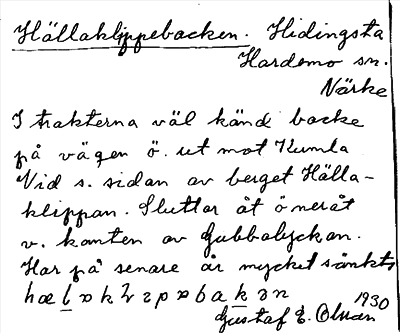 Hällaklippebacken. Hidingsta
Hardemo sn.
Närke
I trakterna väl känd backe
på vägen ö. ut mot Kumla
Vid s. sidan av berget Hälla-
klippan. Sluttar åt öneråt
v. kanten av Gubbalyckan.
Har på senare år mycket sänkts
1930
Gustaf E.